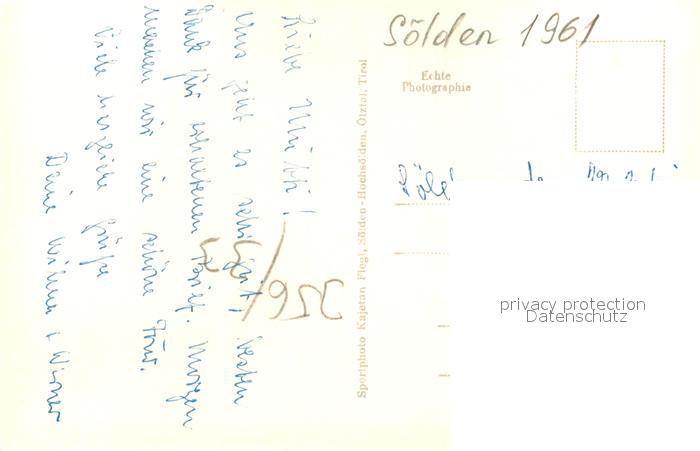 Liebe Mutti!
Uns geht es sehr gut, besten
Dank für erhaltenen Brief. Morgen
machen wir eine schöne Tour.
Viele herzliche Grüße
Deine Wilma + Werner
Sportphoto Kajetan Fiegl, Sölden-Hochsölden, Ötztal, Tirol
Sölden 1961
Echte
Photographie
privacy protection
Datenschutz